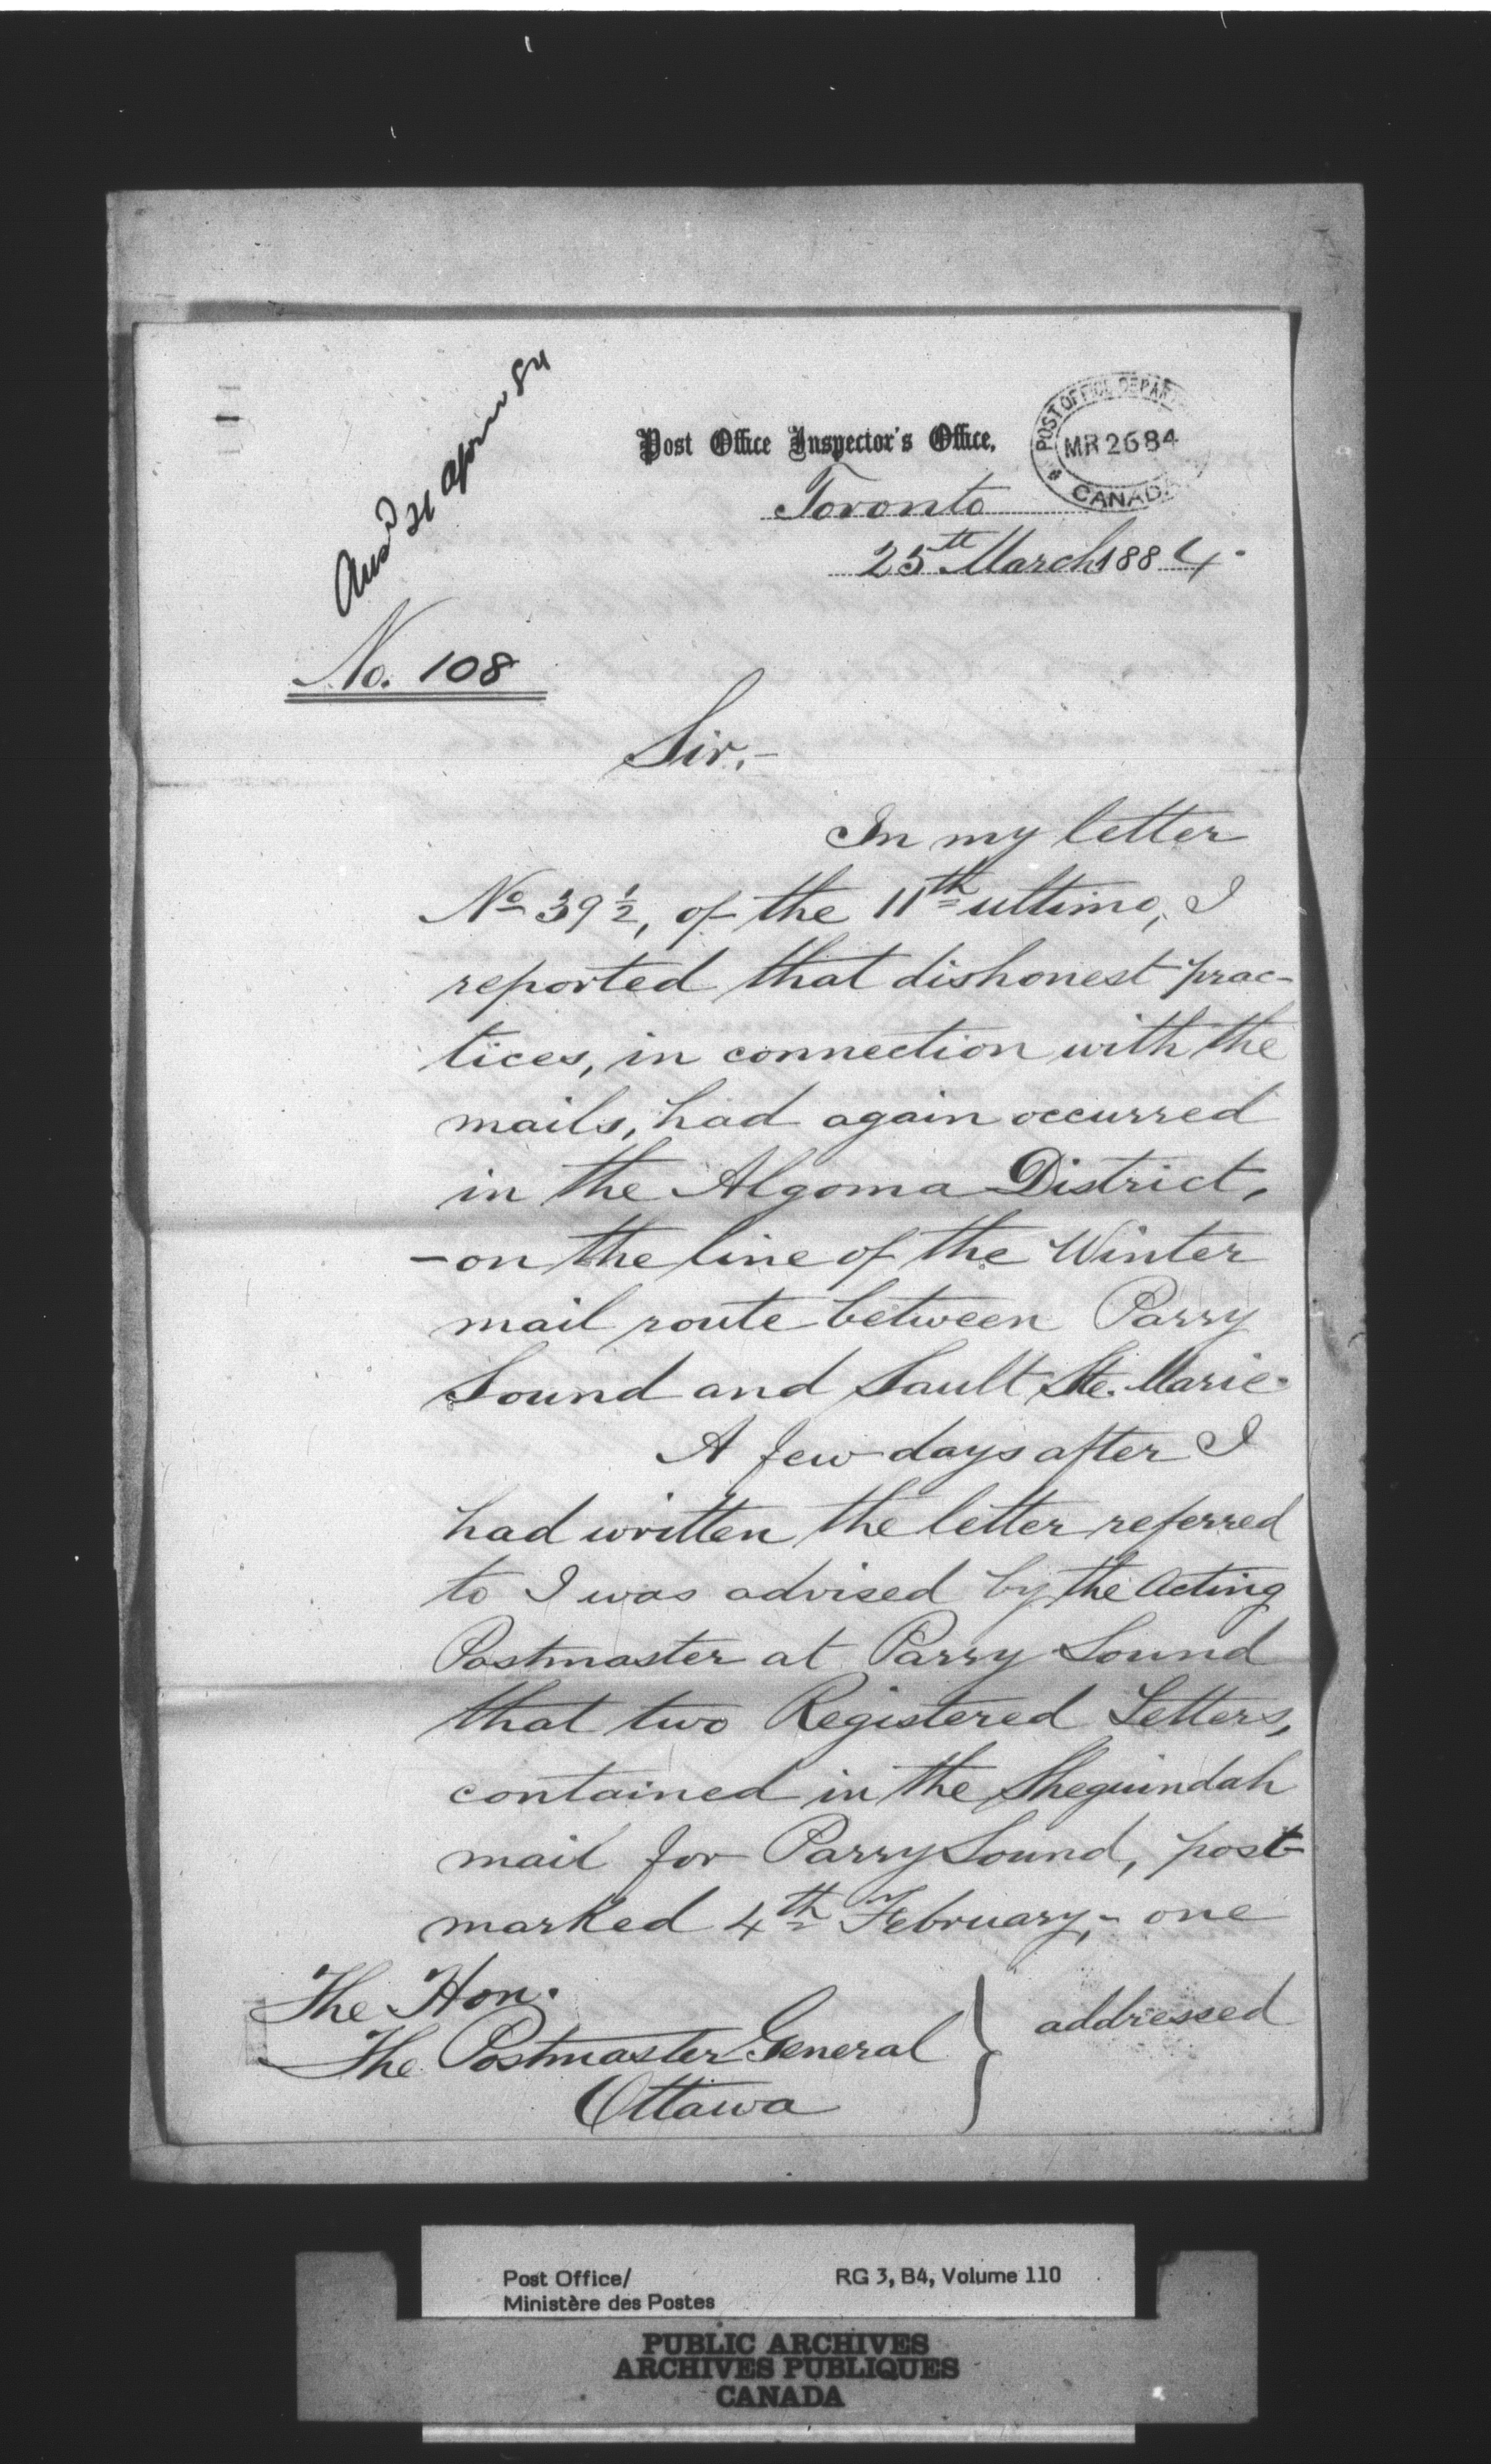 Ansd 21 April 84
Post Office Inspector's Office,
POST OFFICE DEPART
MR 26 84
CANADA
Toronto
25th March 1884.
No. 108
Sir,-
In my letter
No 39½, of the 11th ultimo, I
reported that dishonest prac-
tices, in connection with the
mails, had again occurred
in the Algoma District,
- on the line of the Winter
mail route between Parry
Sound and Sault Ste. Marie.
A few days after I
had written the letter referred
to I was advised by the Acting
Postmaster at Parry Sound
that two Registered Letters,
contained in the Sheguindah
mail for Parry Sound, post-
marked 4th February, - one
addressed
The Hon.
The Postmaster General
Ottawa
Post Office/
Ministère des Postes
RG 3, B4, Volume 110
PUBLIC ARCHIVES
ARCHIVES PUBLIQUES
CANADA